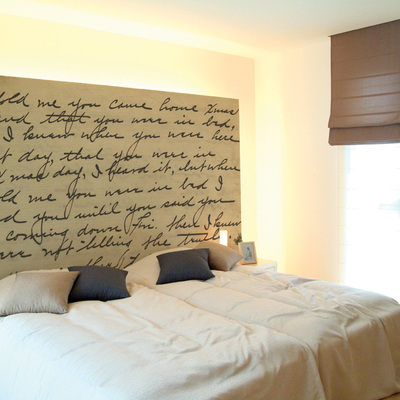 old me you came home Xmas
and that you were in bed,
I knew when you were here
t day, that you were in
mas day, I heard it, but where
old me you were in bed I
d you until you said you
coming down Fri. then I knew
ere not telling the truth
then